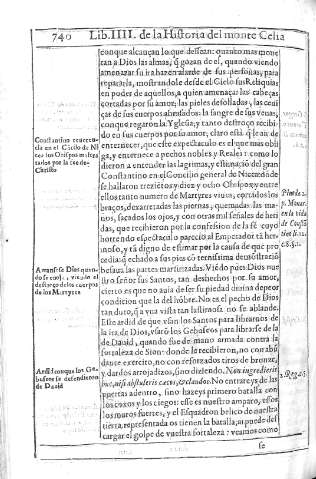 740 Lib. IIII. de la Historia del monte Celia
conque alcançan lo que dessean: quanto mas mone
tan a Dios las almas, q̃ gozan de el, quando viendo
amenazar su ira hazen alarde de sus personas, para
repararla, mostrandole desde el Cielo sus Reliquias
en poder de aquellos, a quien amenaçan las cabeças
cortadas por su amor; las pieles desolladas, las ceni
ças de sus cuerpos abrasados: la sangre de sus venas,
conque regaron la Yglesia; y tanto destroço recibi
do en sus cuerpos por su amor; claro està q̃ le aia de
enternecer, que este expectaculo es el que mas obli
ga, y enternece a pechos nobles y Reales: como lo
dieron a entender las lagrimas, y estimaciõ del gran
Constantino en el Concilio general de Nicea, dõde
se hallaron trezietos y diez y ocho Obispos, y entre
ellos tanto numero de Martyres vivos, cortados los
braços, dexarretadas las piernas, quemadas las ma-
nos, sacados los ojos, y con otras mil señales de heri
das, que recibieron por la confession de la fè cuyo
horrendo espectaculo parecio al Emperador tã her-
moso, y tã digno de estimar por la causa de que pro
cedia, q̃ echado a sus pies cõ ternissima demostraciõ
besaua las partes martirizadas. Viẽdo pues Dios nues
tro señor sus Santos, tan deshechos por su amor,
cierto es que no aula de ser su piedad diuina de peor
condicion que la del hõbre. No es el pecho de Dios
tan duro, q̃ a vna vista tan lastimosa no se ablande.
Esse ardid de que vsan los Santos para librarnos de
la ira de Dios, vsarõ los Gebuseos para librarse de la
de Dauid, quando fue de mano armada contra la
fortaleza de Sion: donde le recibieron, no con abũ
dance exercito, no con reforzados tiros de bronze,
y dardos arrojadizos, sino diziendo. Non ingredieris
huc, nisi abstuleris cæcos, & claudos. No entrareys de las
puertas adentro, sino hazeys primero batalla con
los coxos y los ciegos: esse es nuestro amparo, essos
los muros fuertes, y el Esquadron belico de nuestra
tierra, representada os tienen la batalla, si puede des
cargar el golpe de vuestra fortaleza: veamos como
se
Constantino reueren-
cia en el
Christo
Amansase Dios quan
de los Martyres
Ardid conque los Ge-
buseos se defendieron
de Dauid
2. Reg. 5.